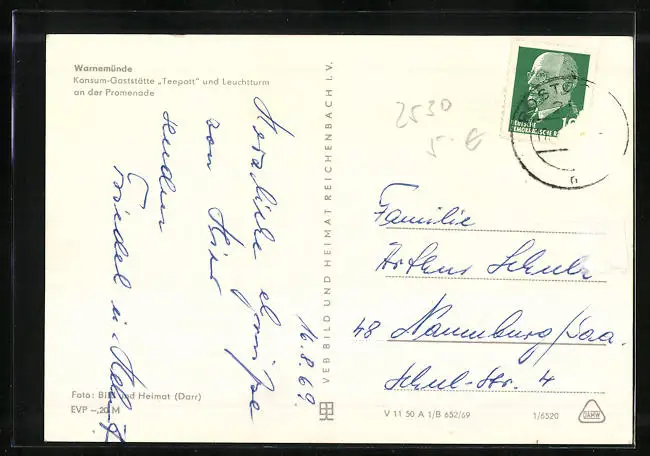 Warnemünde
Konsum-Gaststätte „Teepott" und Leuchtturm
an der Promenade
16.8.69.
Herzliche Grüße
von hier
senden
Friedel u.
Foto: Bild und Heimat (Darr)
EVP –,20 M
VEB BILD UND HEIMAT REICHENBACH I. V.
2530
5.- €
ROSTO
10
DEUTSCHE
DEMOKRATISCHE RE
Familie
Arthur Schulz
48 Naumburg/Saa.
Schul-Str. 4
V 11 50 A 1/B 652/69
1/6520
DAMW